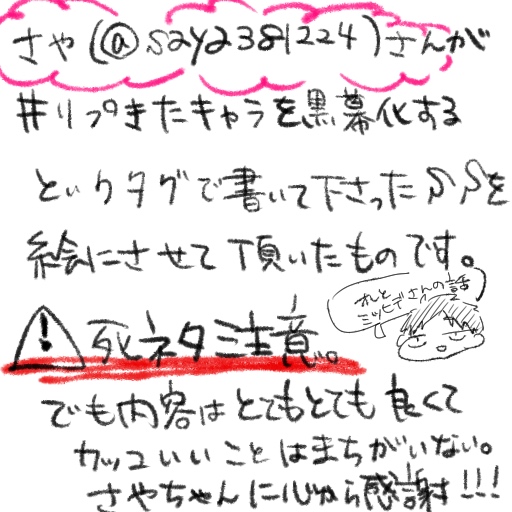 さや(@saya381224)さんが
#リプきたキャラを黒幕化する
というタグで書いて下さったSSを
絵にさせて頂いたものです。
オレと
ミツヒデさんの話
⚠死ネタ注意。
でも内容はとてもとても良くて
カッコいいことはまちがいない。
さやちゃんに心から感謝!!!